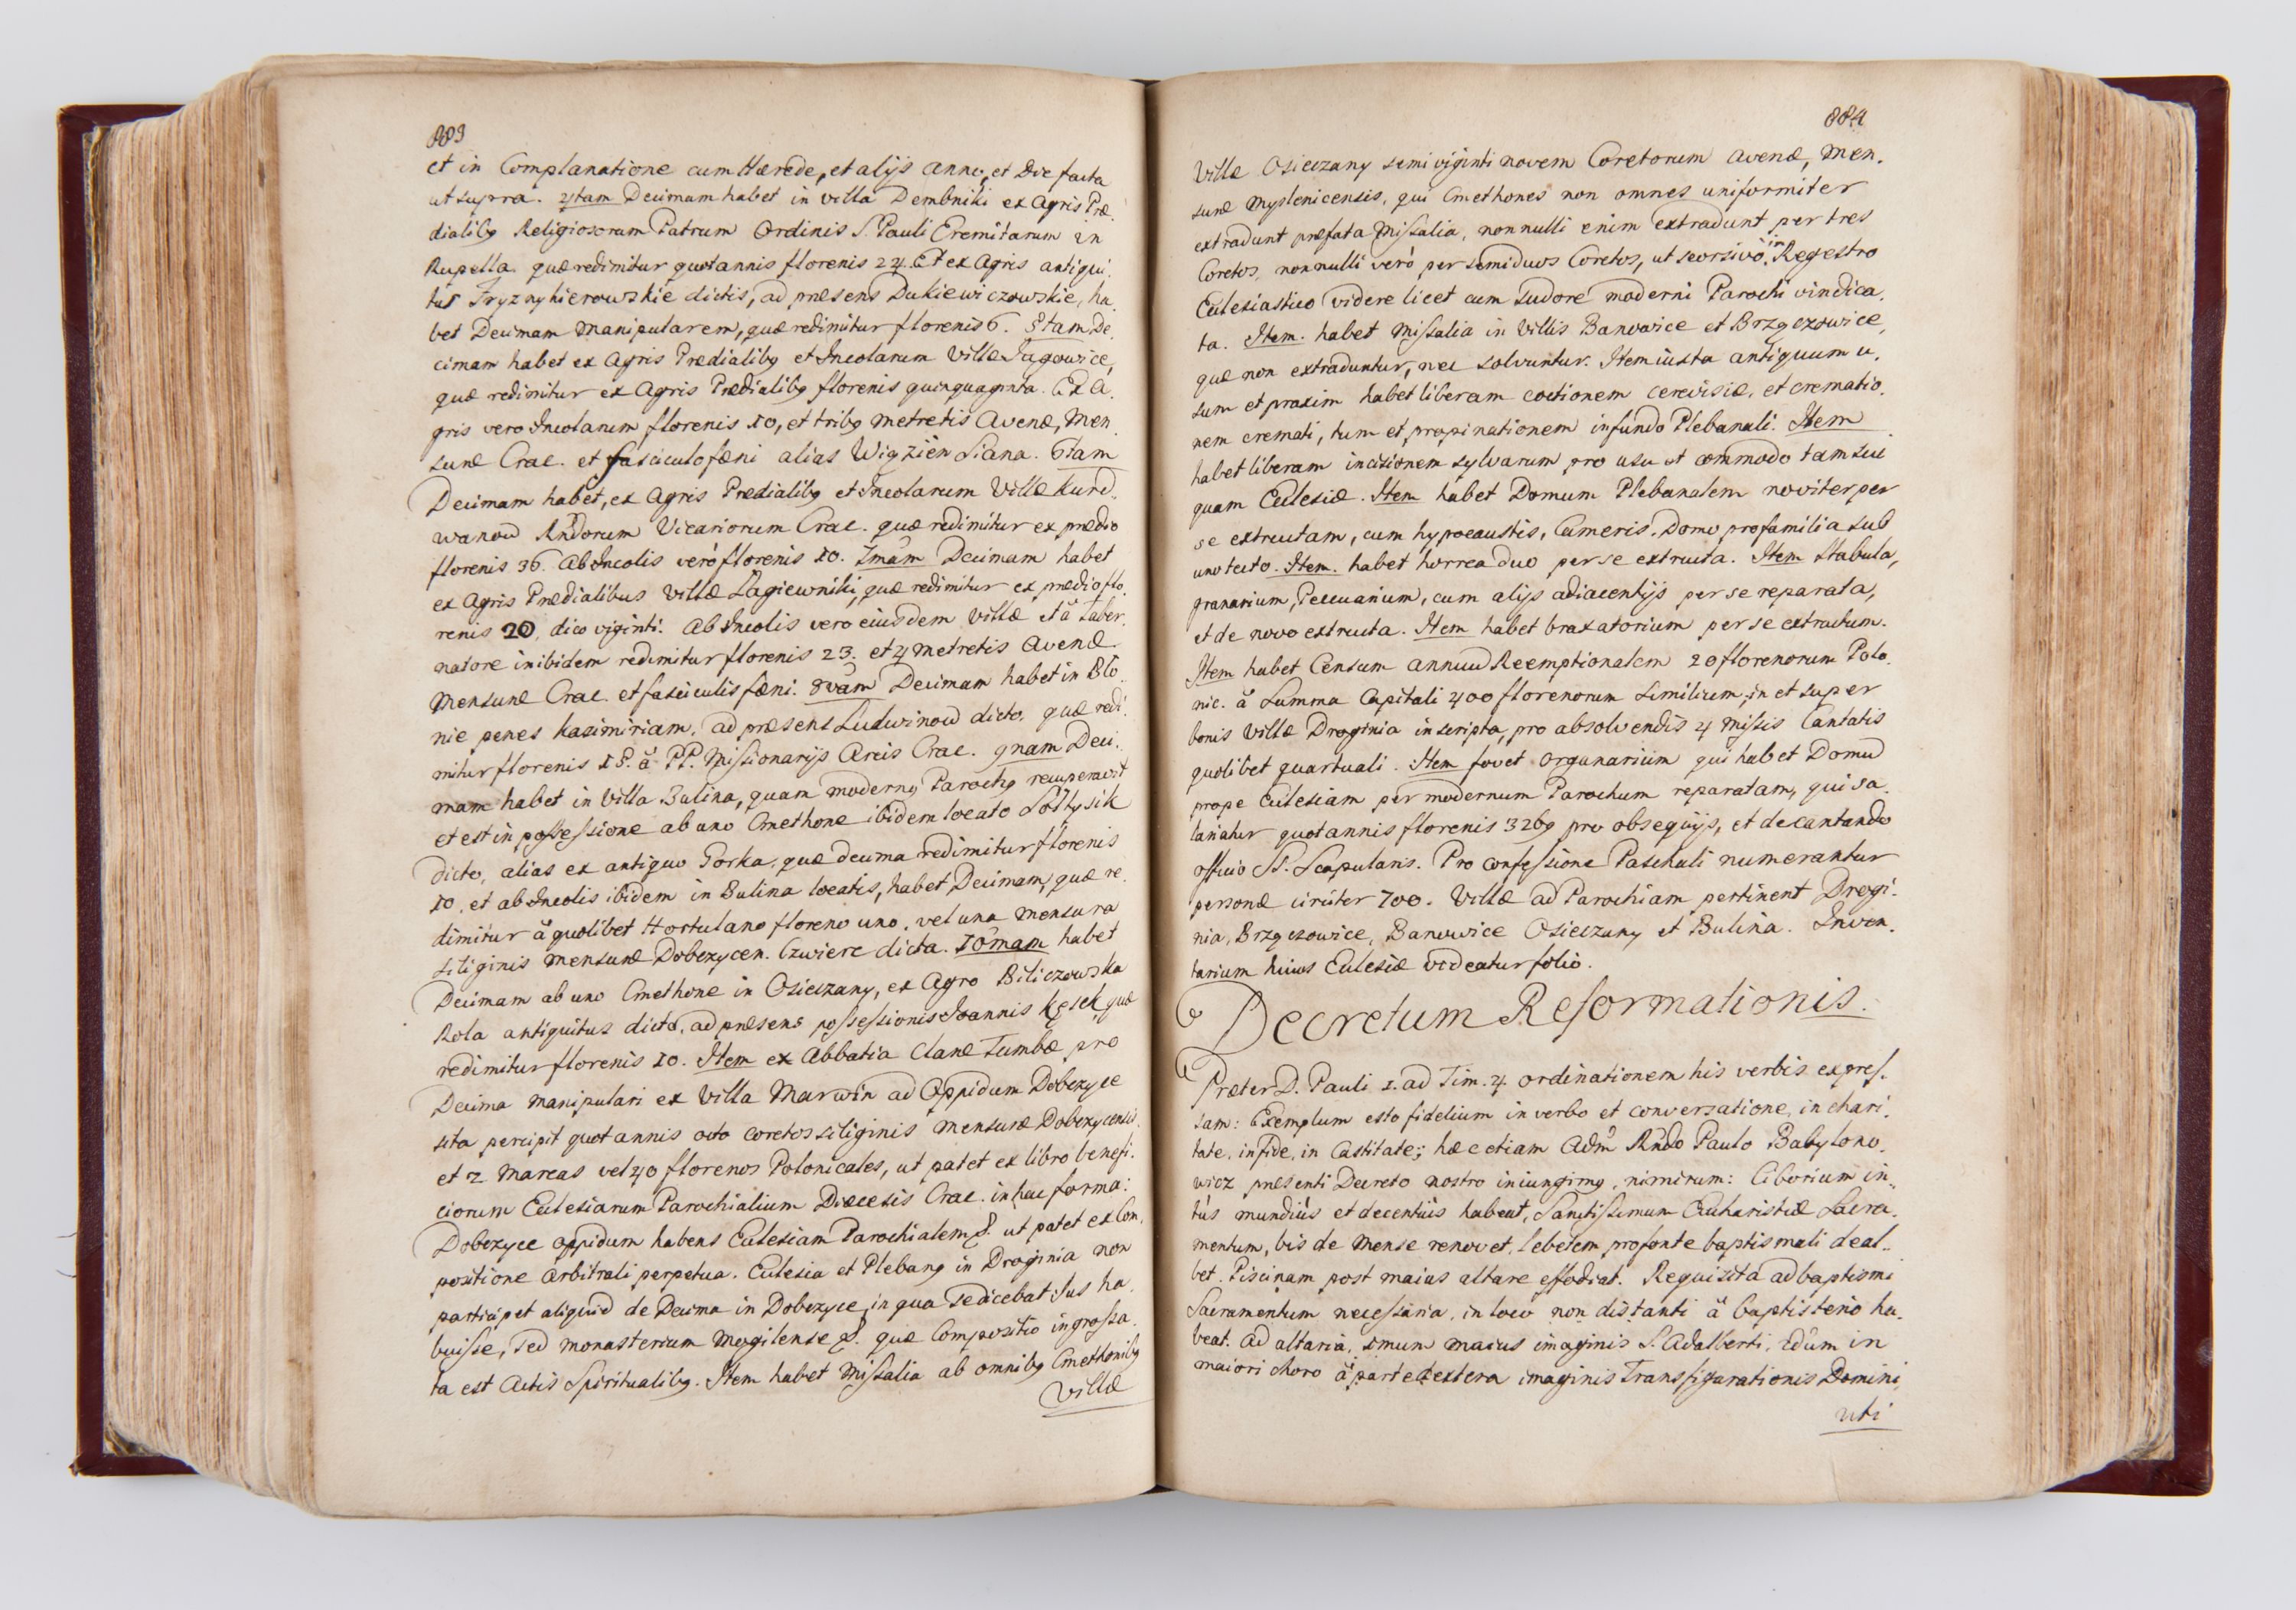 883
et in Complanatione cum Hærede, et alijs anno, et Die facta
ut supra. 4tam Decimam habet in villa Dembniki ex Agris Præ-
dialibq Religiosorum Patrum Ordinis S. Pauli Eremitarum in
Rupella. quæ redimitur quotannis florenis 24. Et ex Agris antiqui-
tus dictis, ad præsens Dukiewiczowskie, ha-
bet Decimam Manipularem, quæ redimitur florenis 6. 5tam De-
cimam habet ex Agris Prædialibq et Incolarum Villæ Jugowice,
quæ redimitur ex Agris Prædialibq florenis quinquaginta. Ex A-
gris vero Incolarum florenis 10, et tribq Metretis Avenæ, Men-
suræ Crac. et fasciculo fæni alias Wiązień Siana. 6tam
Decimam habet, ex Agris Prædialibq et Incolarum Villæ Kurd-
wanow Rndorum Vicariorum Crac. quæ redimitur ex prædio
florenis 36. Ab Incolis verò florenis 10. 7mam Decimam habet
ex Agris Prædialibus Villæ Łagiewniki, quæ redimitur ex prædio flo-
renis 20, dico viginti. Ab Incolis vero eiusdem Villæ et à Taber-
natore inibidem redimitur florenis 23. et 4 metretis Avenæ
Mensuræ Crac. et fasciculis fæni. 8vam Decimam habet in Blo-
nie penes Kazimiriam, ad præsens Ludwinow dicto, quæ redi-
mitur florenis 18. à PP. Missionarijs Arcis Crac. 9nam Deci-
mam habet in Villa Bulina, quam modernq Parochq recuperavit
et est in possessione ab uno Cmethone ibidem locato Sołtysik
dicto, alias ex antiquo Porka, quæ decima redimitur florenis
10. et ab Incolis ibidem in Bulina locatis, habet Decimam, quæ re-
dimitur à quolibet Hortulano floreno uno, vel una mensura
siliginis Mensuræ Dobczycen. Czwierc dicta. 10mam habet
Decimam ab uno Cmethone in Osieczany, ex Agro Biliczowska
Rola antiquitus dicto, ad præsens possessionis Joannis Kęsek quæ
redimitur florenis 10. Item ex Abbatia Claræ Tumbæ pro
Decima manipulari ex Villa Marwin ad Oppidum Dobczyce
sita percipit quotannis octo coretos siliginis mensuræ Dobczycensis
et 2 Marcas vel 40 florenos Polonicales, ut patet ex libro benefi-
ciorum Ecclesiarum Parochialium Diæcesis Crac. in hac forma:
Dobczyce oppidum habens Ecclesiam Parochialem &. ut patet ex Com-
positione Arbitrali perpetua. Ecclesia et Plebanq in Droginia non
participet aliquid de Decima in Dobczyce, in qua se dicebat Jus ha-
buisse, sed monasterium Mogilense &. quæ Compositio ingrossa-
ta est Actis Spiritualibq. Item habet Missalia ab omnibq Cmethonibq
Villæ
884
Villæ Osieczany semi viginti novem Coretorum avenæ, Men-
suræ Myslenicensis, qui Cmethones non omnes uniformiter
extradunt præfata Missalia, nonnulli enim extradunt per tres
Coretos, nonnulli verò per semiduos Coretos, ut seorsivo in Regestro
Ecclesiastico videre licet cum sudore moderni Parochi vindica-
ta. Item. habet Missalia in Villis Banowice et Brzączowice,
quæ non extraduntur, nec solvuntur. Item iuxta antiquum u-
sum et praxim habet liberam coctionem cerevisiæ, et crematio-
nem cremati, tum et propinationem in fundo Plebanali. Item
habet liberam incisionem sylvarum pro usu et commodo tam sui
quam Ecclesiæ. Item habet Domum Plebanalem noviter per
se extructam, cum hypocaustis, Cameris. Domo pro familia sub
uno tecto. Item. habet horrea duo per se extructa. Item Stabula,
granarium, Pecuarium, cum alijs adiacentijs per se reparata,
et de novo extructa. Item habet braxatorium per se extructum.
Item habet Censum annuu Reemptionalem 20 florenorum Polo-
nic. à Summa Capitali 400 florenorum similium, in et super
bonis Villæ Droginia inscripta, pro absolvendis 4 Missis Cantatis
quolibet quartuali. Item fovet organarium qui habet Domu
prope Ecclesiam per modernum Parochum reparatam, qui sa-
lariatur quotannis florenis 32bq pro obsequijs, et decantando
officio SS. Scapularis. Pro confessione Paschali numerantur
personæ circiter 700. Villæ ad Parochiam pertinent Drogi-
nia, Brzączowice, Banowice Osieczany et Bulina. Inven-
tarium huius Ecclesiæ videatur folio.
Decretum Reformationis.
Præter D. Pauli 1. ad Tim. 4. ordinationem his verbis expres-
sam: Exemplum esto fidelium in verbo et conversatione, in chari-
tate, in fide, in castitate; hæc etiam Adm Rndo Paulo Babylono-
wicz præsenti Decreto nostro iniungimq, nimirum: Ciborium in-
tus mundius et decentius habeat, Sanctissimum Eucharistiæ Sacra-
mentum, bis de mense renovet, lebetem pro fonte baptismali deal-
bet. Piscinam post maius altare effodiat. Requisita ad baptismi
Sacramentum necessaria, in loco non distanti à baptisterio ha-
beat. Ad altaria, 1mum maius imaginis S. Adalberti, 2dum in
maiori choro à parte dextera imaginis Transfigurationis Domini,
uti